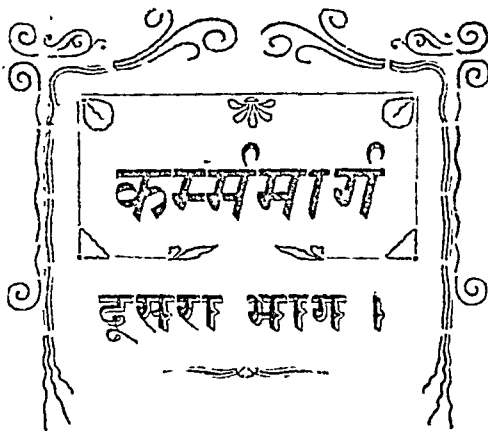 कर्म्ममार्ग
दूसरा भाग ।